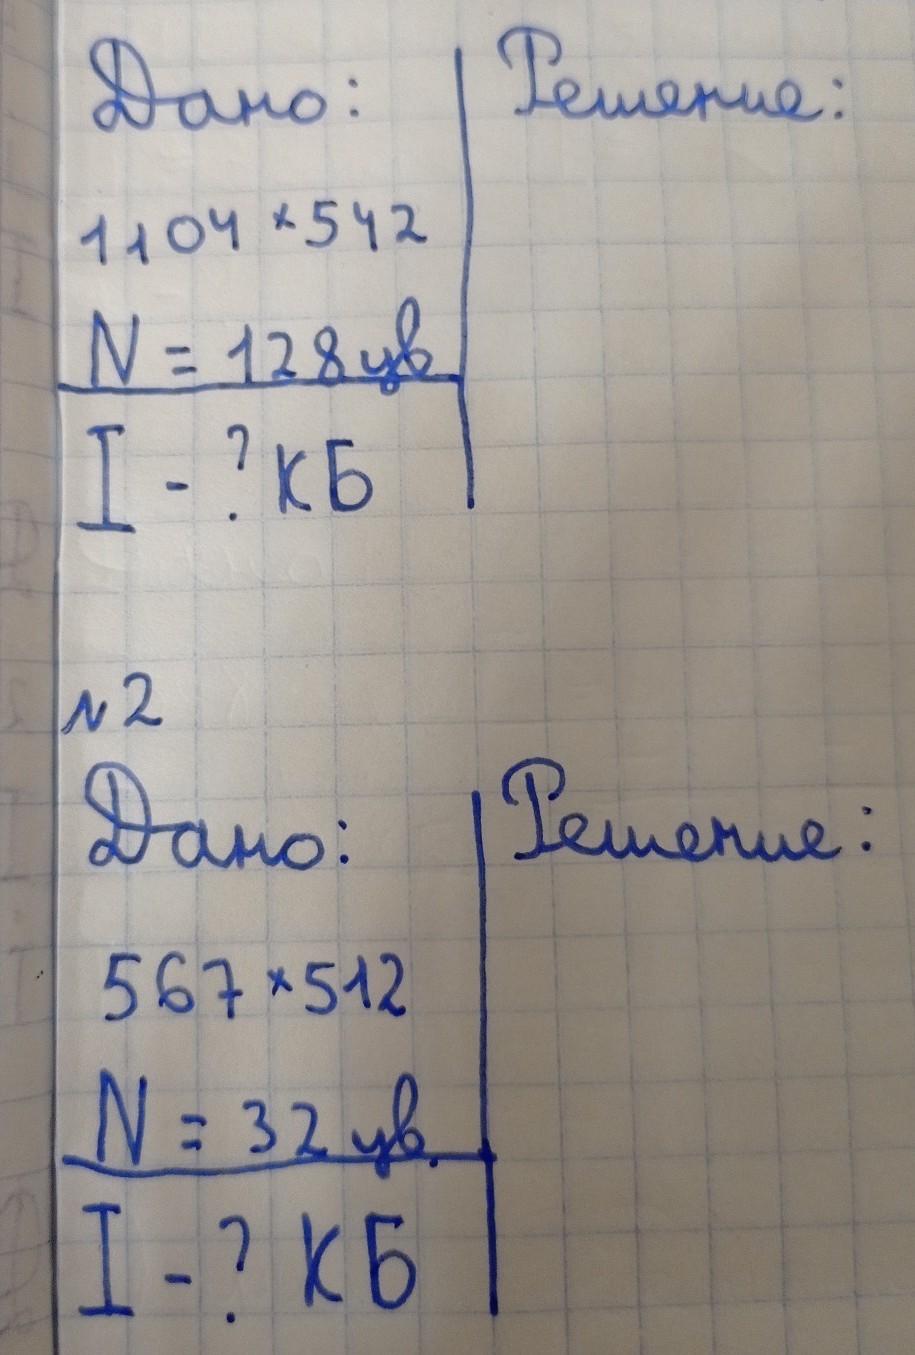 Дано: Решение:
1104 × 542
N = 128 цв
I - ? КБ
№2
Дано: Решение:
567 × 512
N = 32 цв.
I - ? КБ